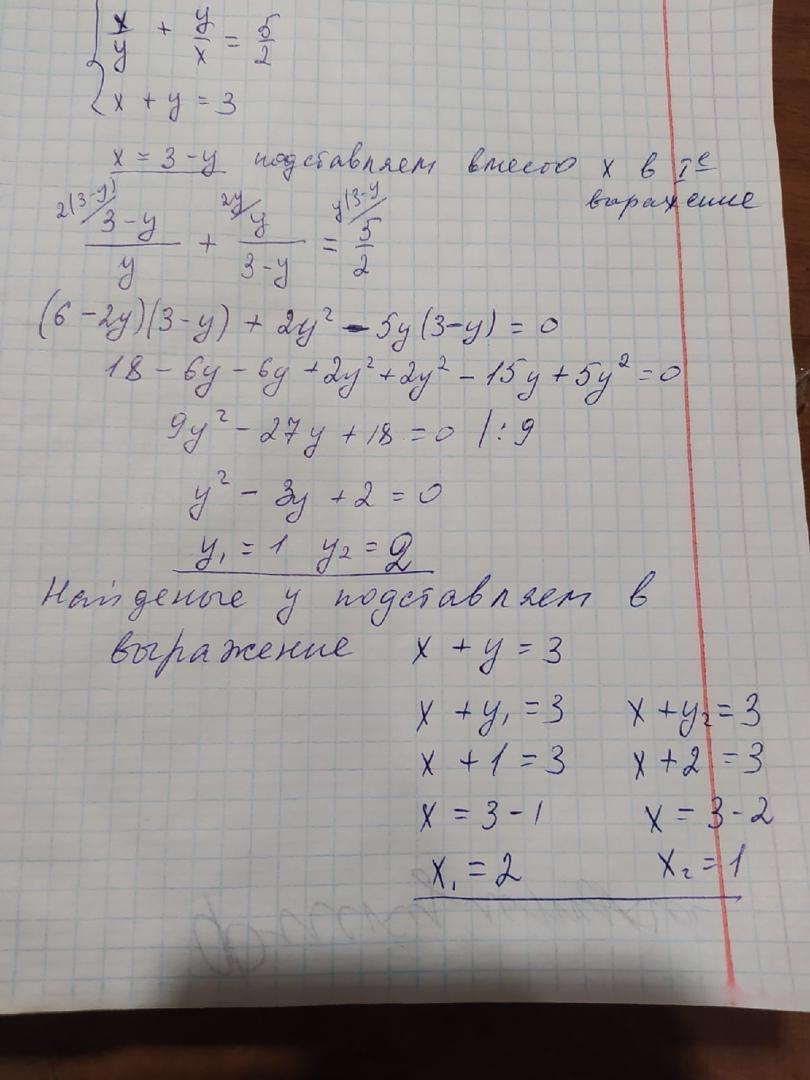 x/y + y/x = 5/2
x + y = 3
x = 3 - y подставляем вместо x в Iе
выражение
2(3-y)/ 3-y/y + 2y/ y/3-y = y(3-y/ 5/2
(6 - 2y)(3 - y) + 2y² - 5y(3-y) = 0
18 - 6y - 6y + 2y² + 2y² - 15y + 5y² = 0
9y² - 27y + 18 = 0 /:9
y² - 3y + 2 = 0
y₁ = 1 y₂ = 2
Найденые y подставляем в
выражение x + y = 3
x + y₁ = 3 x + y₂ = 3
x + 1 = 3 x + 2 = 3
x = 3 - 1 x = 3 - 2
x₁ = 2 x₂ = 1